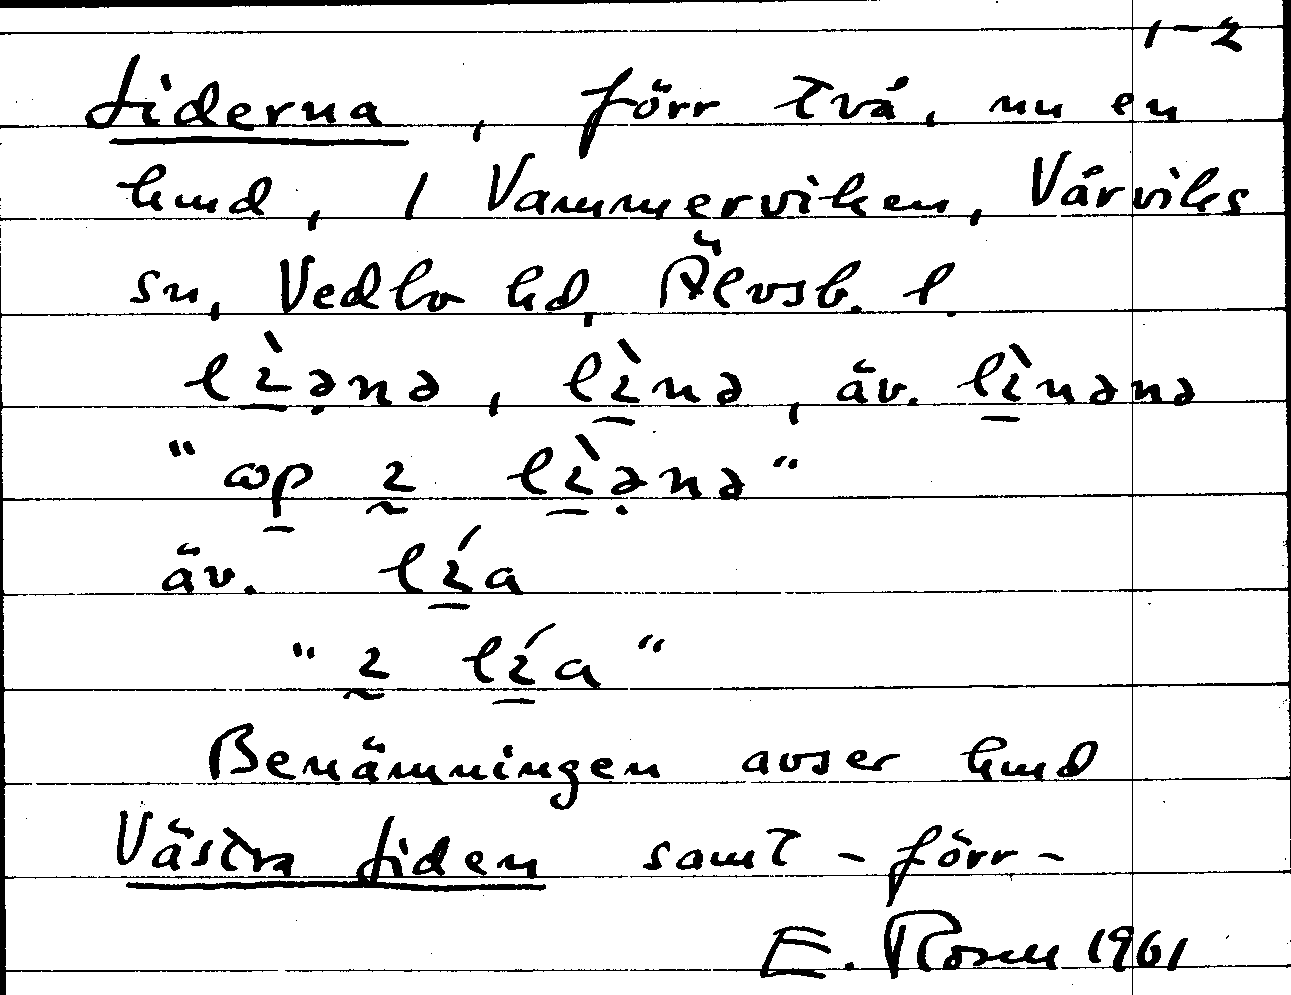 1-2
Liderna, förr två, nu en
hmd, 1 Vammerviken, Vårviks
sn, Vedbo hd, Älvsb. l.
lɩ̀ə̣nə, lɩ̀nə, äv. lɩ̀nənə
"ɷp ɩ lɩ̀ə̣nə"
äv. lɩ́a
"ɩ lɩ́a"
Benämningen avser hmd
Västra Liden samt - förr -
E. Rosell 1961